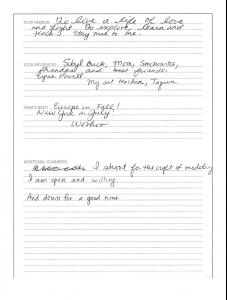 YOUR PASSION: To live a life of love
and light. To explore, learn and
teach. Stay true to me.
YOUR INFLUENCES: Sibyl Buck, Mom,
Grandpal and best friends.
Powell
My art teacher,
WHAT'S NEXT? Europe in Fall!
New York in July!
Woohoo
ADDITIONAL COMMENTS:
I shoot for the of modeling
I am open and willing.
And down for a good time